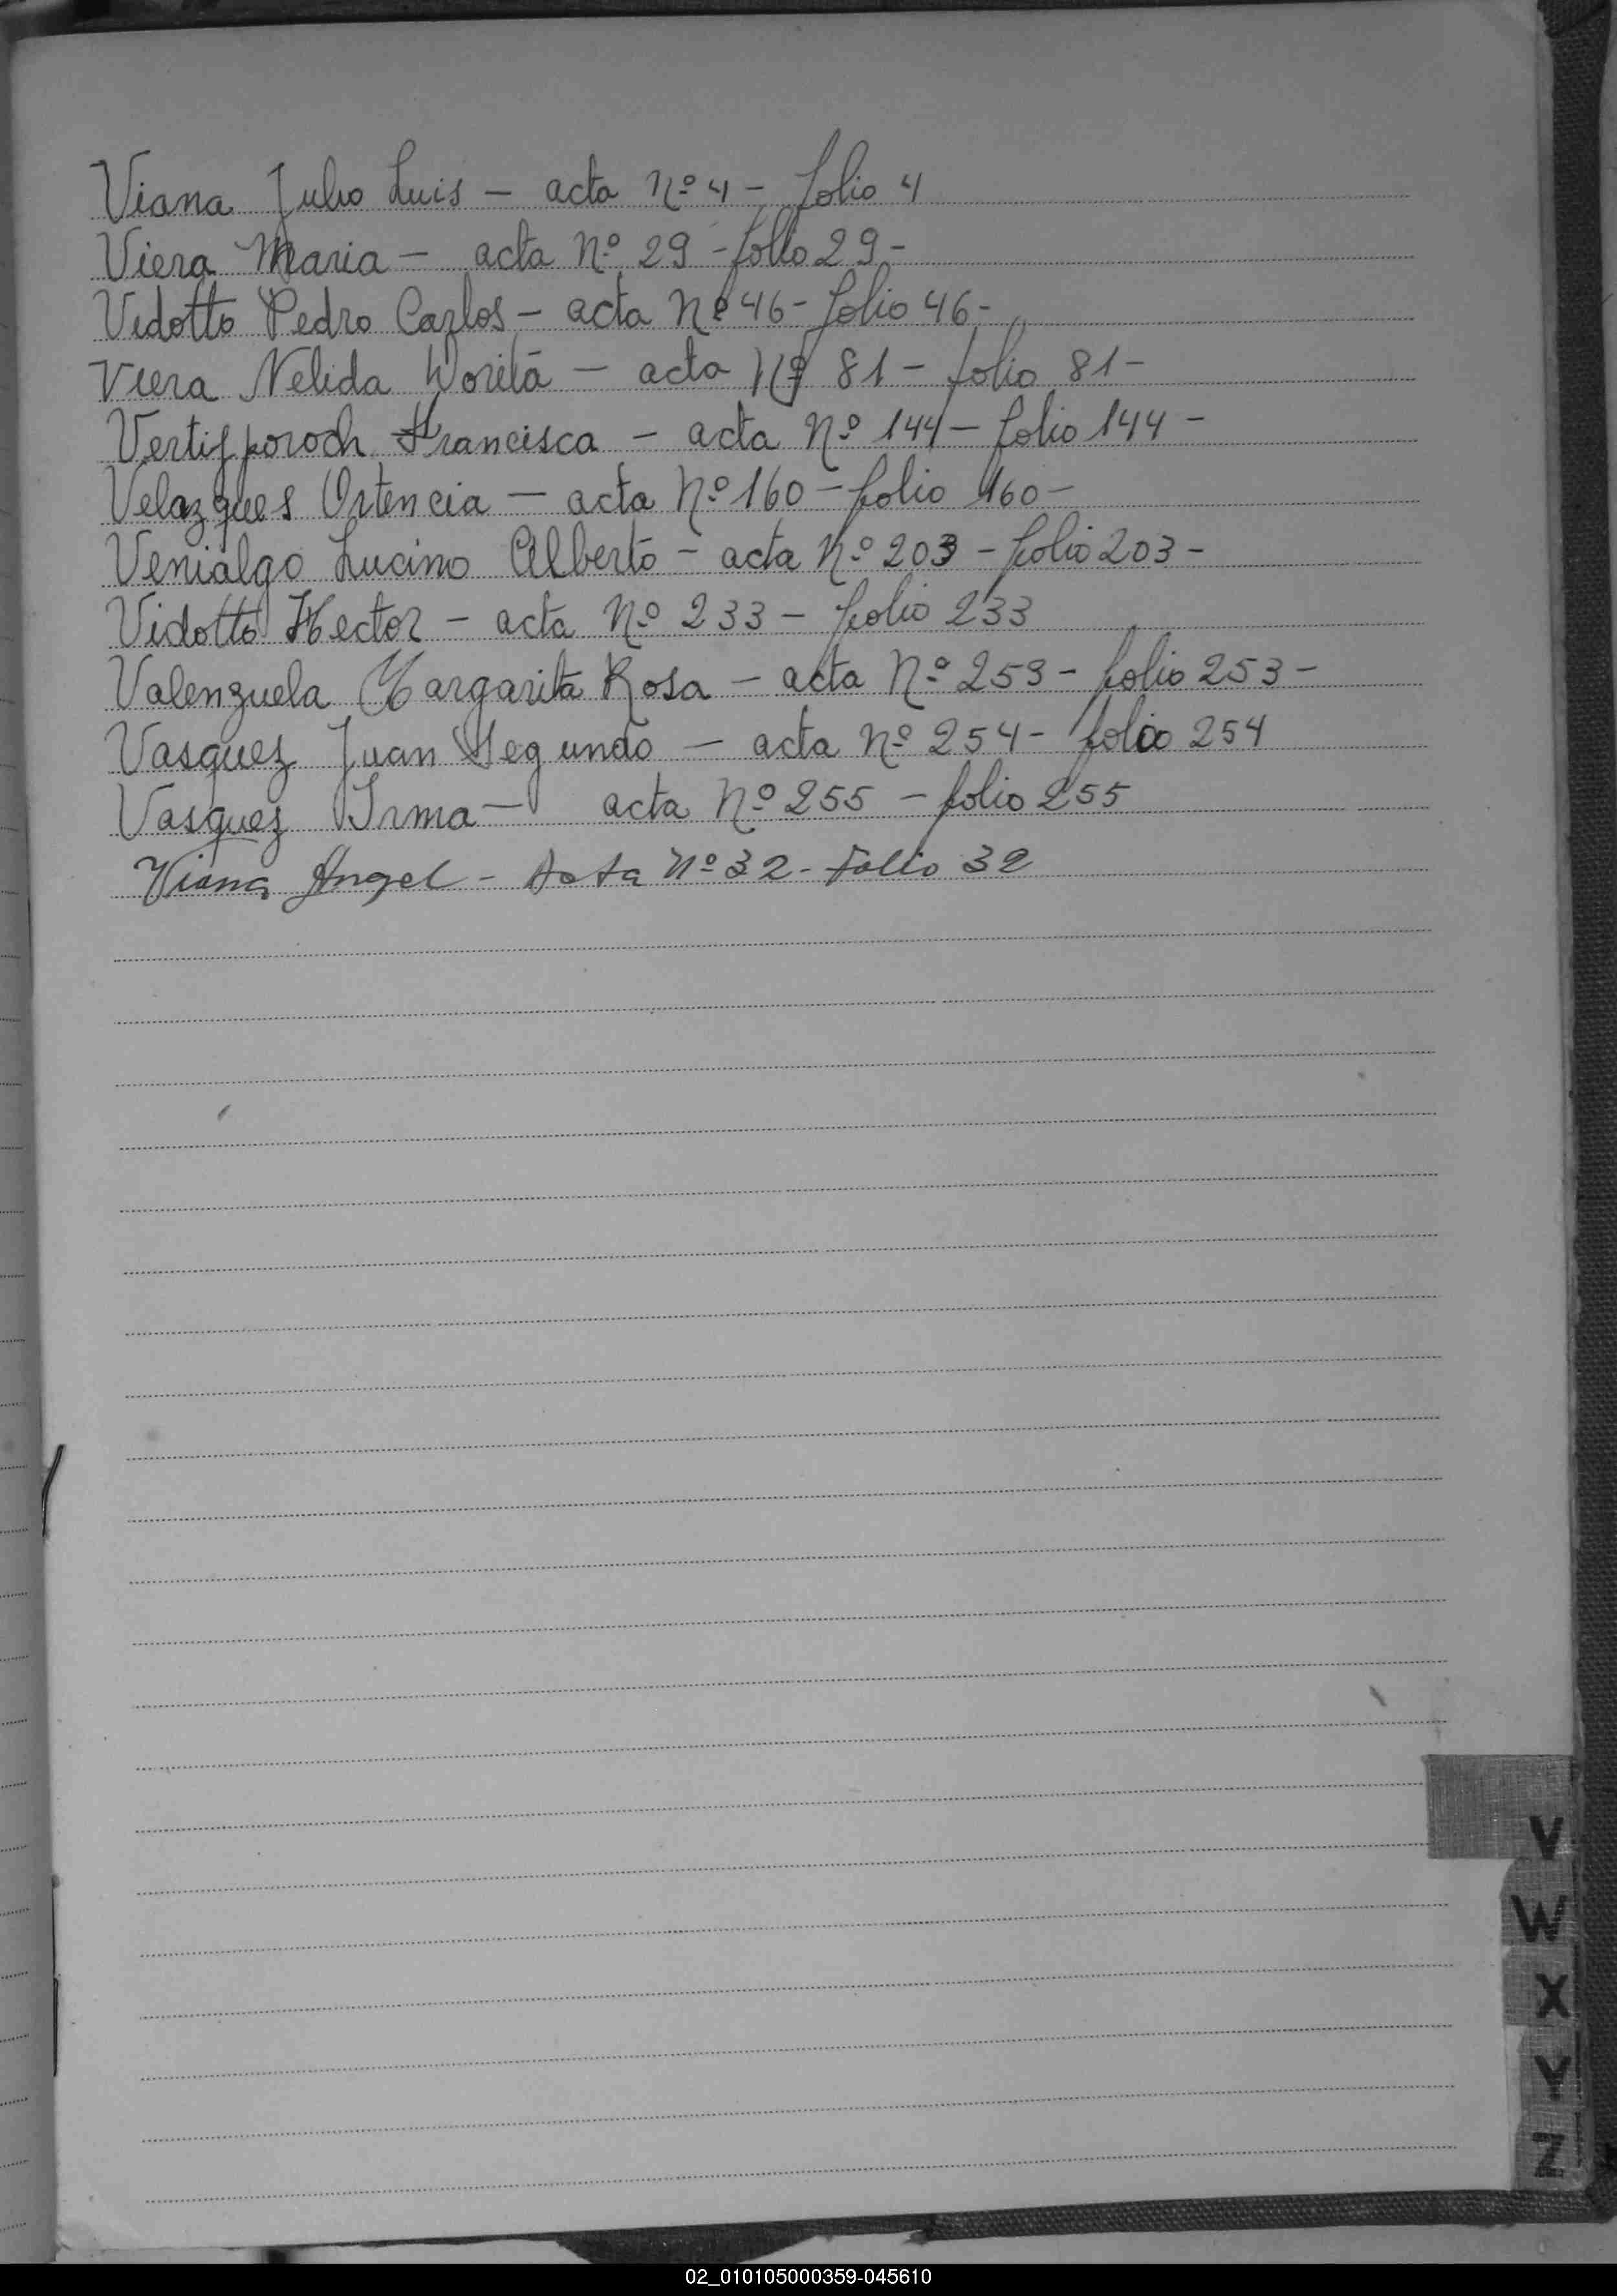 Viana Julio Luis - acta Nº 4 - folio 4
Viera Maria - acta Nº 29 - folio 29 -
Vidotto Pedro Carlos - acta Nº 46 - folio 46 -
Viera Nelida Dorita - acta Nº 81 - folio 81 -
Francisca - acta Nº 144 - folio 144 -
Velazques Ortencia - acta Nº 160 - folio 160 -
Venialgo Lucino Alberto - acta Nº 203 - folio 203 -
Vidotto Hector - acta Nº 233 - folio 233
Valenzuela Margarita Rosa - acta Nº 253 - folio 253 -
Vasquez Juan Segundo - acta Nº 254 - folio 254
Vasquez Irma - acta Nº 255 - folio 255
Viana Angel - Acta Nº 32 - Folio 32
V
W
X
Y
Z
02_010105000359-045610